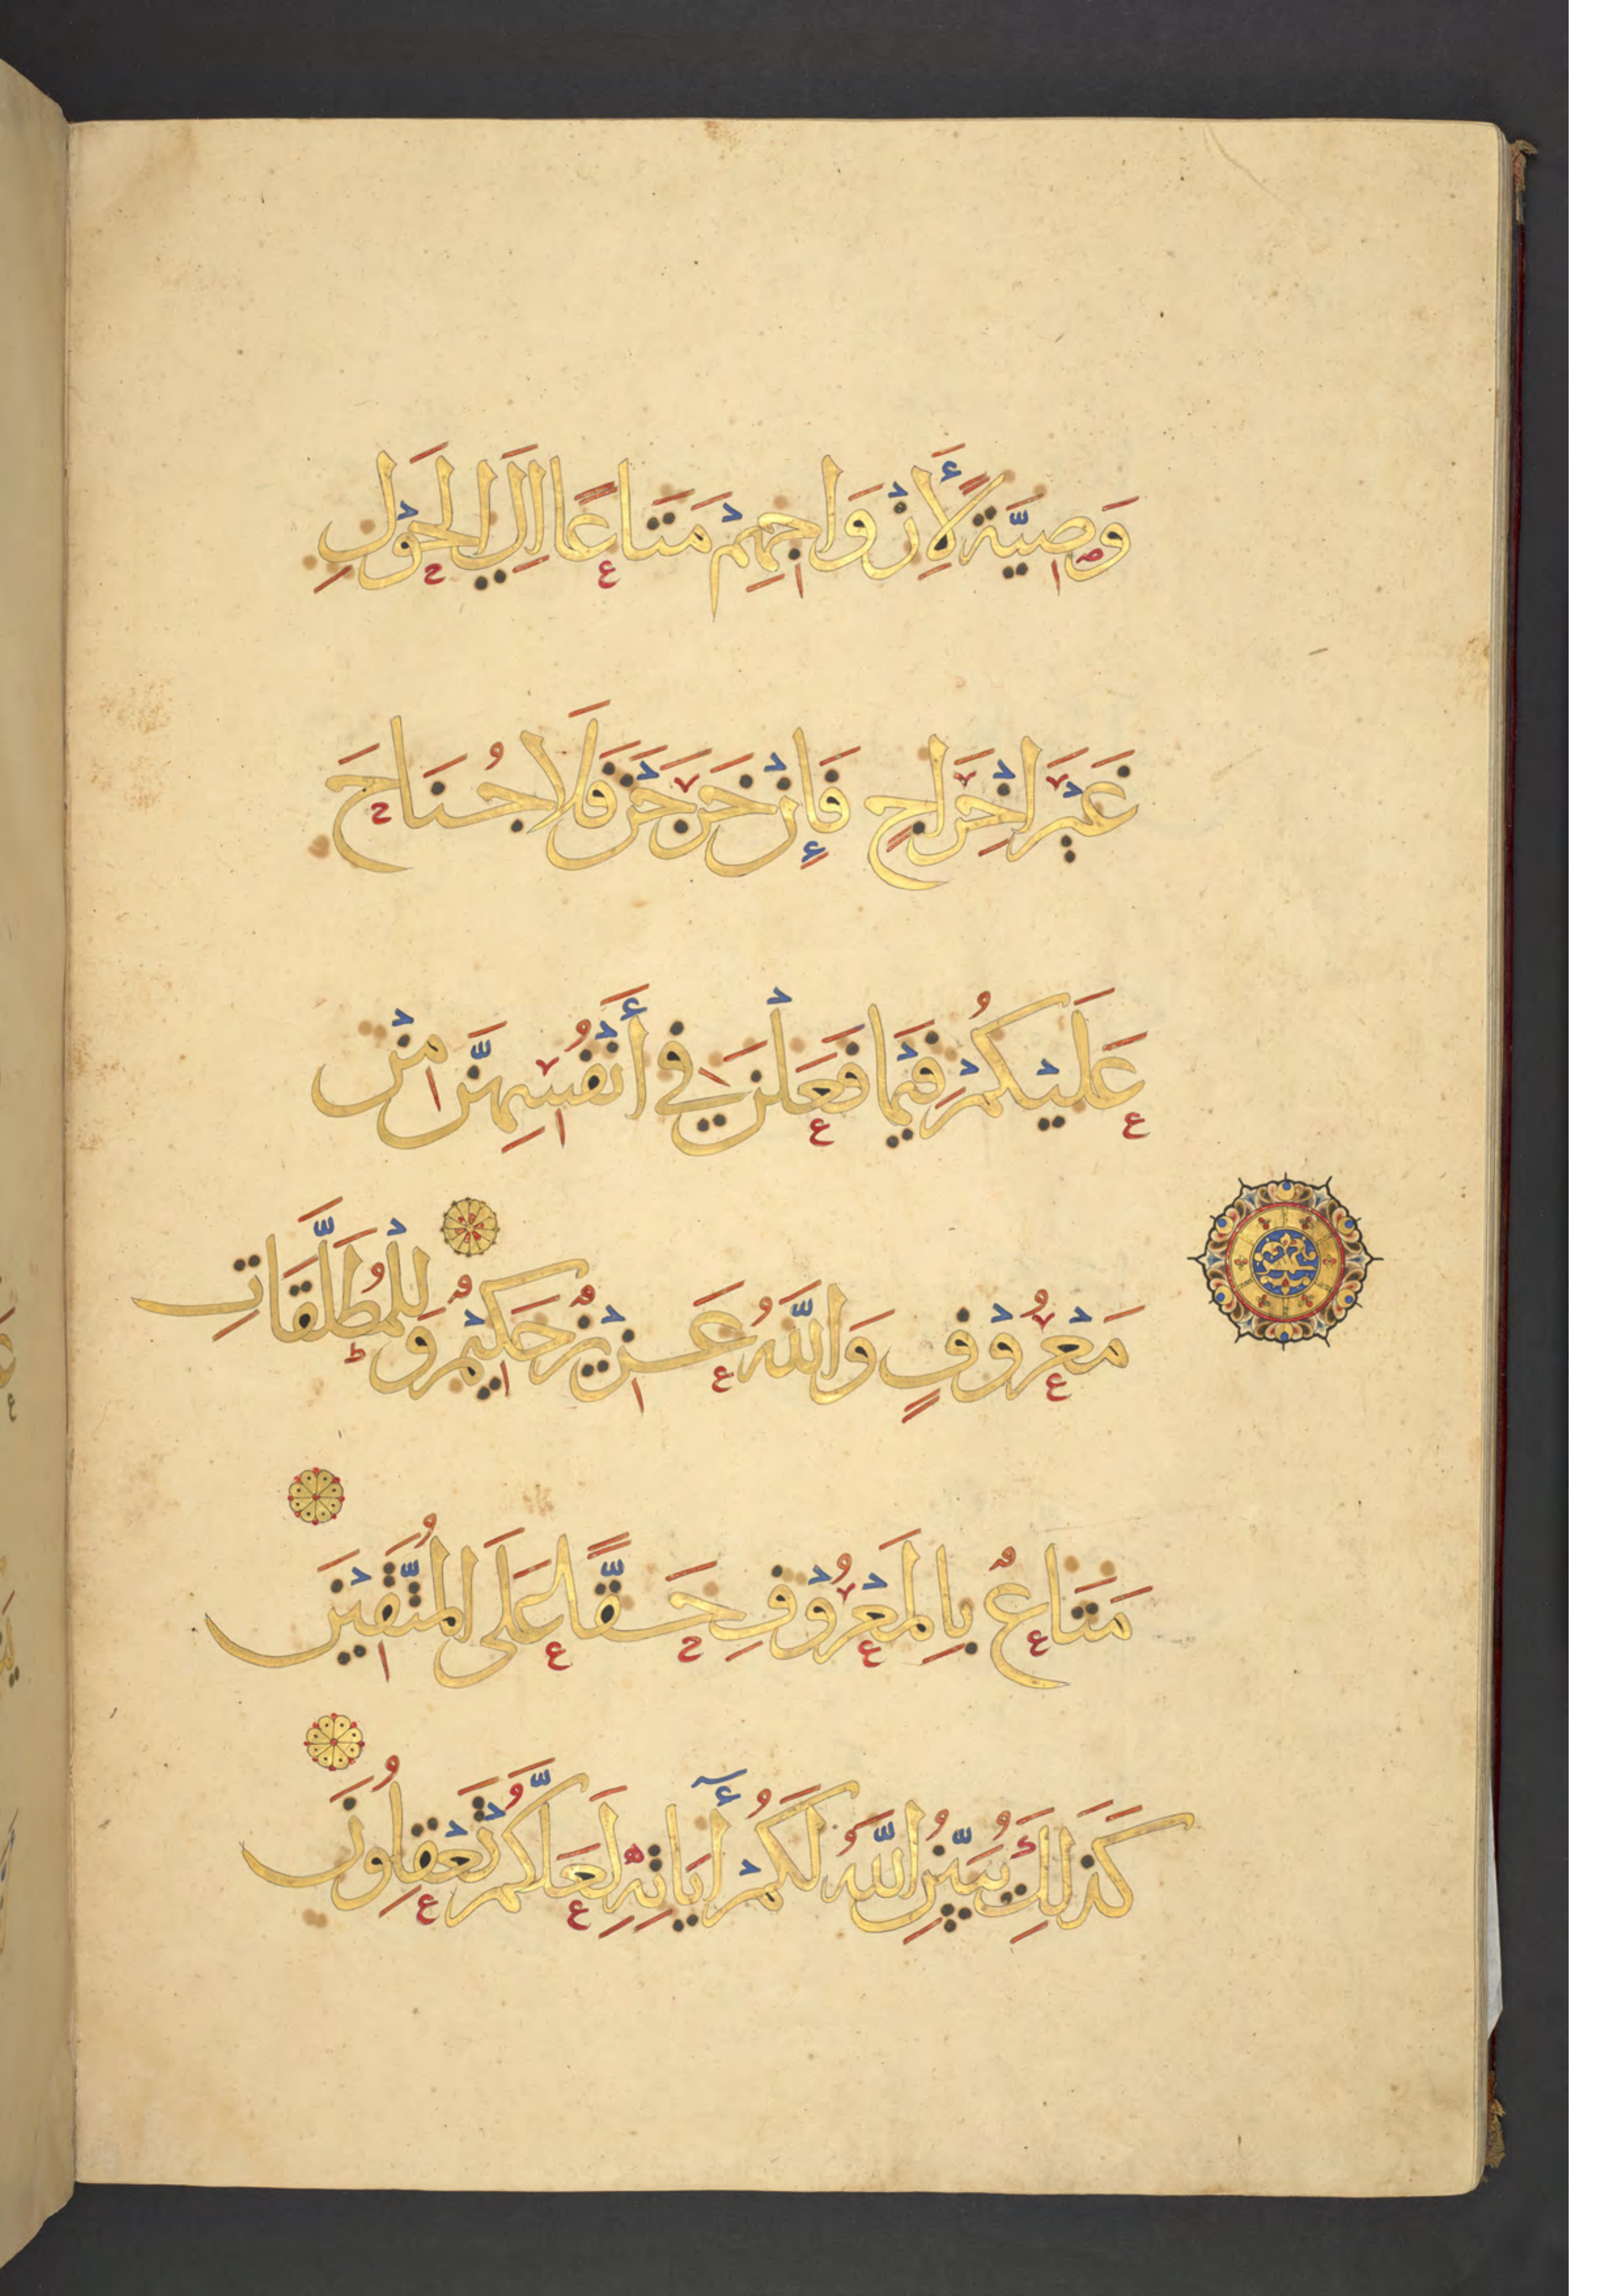 وَصِيَّةً لِأَزْوَاجِهِمْ مَتَاعًا اِلَى الْحَوْلِ
غَيْرَ اِخْرَاجٍ فَإِنْ خَرَجْنَ فَلَا جُنَاحَ
عَلَيْكُمْ فِيْمَا فَعَلْنَ فِي أَنْفُسِهِنَّ مِنْ
مَعْرُوْفٍ وَاللَّهُ عَزِيْزٌ حَكِيْمٌ وَلِلْمُطَلَّقَاتِ
مَتَاعٌ بِالْمَعْرُوْفِ حَقًّا عَلَى الْمُتَّقِيْنَ
كَذَلِكَ يُبَيِّنُ اللَّهُ لَكُمْ أٓيَاتِهِ لَعَلَّكُمْ تَعْقِلُونَ